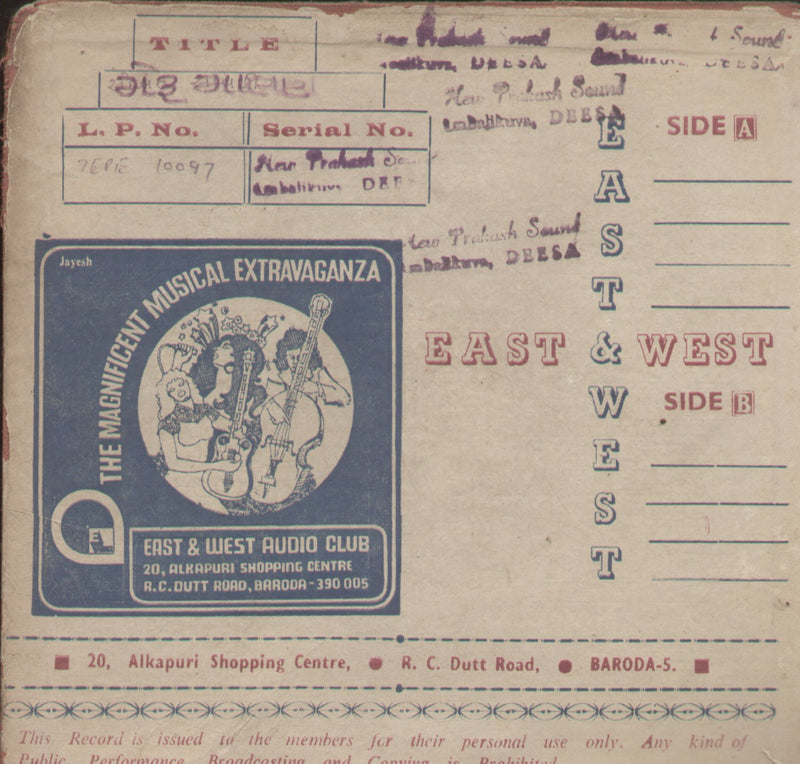 TITLE
L. P. No. Serial No.
7EPE 10097 New Prakash Sound
Ambalikuva, DEESA
New Prakash Sound
Ambalikuva, DEESA
New Prakash Sound
Ambalikuva, DEESA
Sound
DEESA
New Prakash Sound
Ambalikuva, DEESA
SIDE A
EAST & WEST
EAST & WEST
SIDE B
Jayesh
THE MAGNIFICENT MUSICAL EXTRAVAGANZA
EAST & WEST AUDIO CLUB
20, ALKAPURI SHOPPING CENTRE
R. C. DUTT ROAD, BARODA-390 005
20, Alkapuri Shopping Centre, R. C. Dutt Road, BARODA-5.
This Record is issued to the members for their personal use only. Any kind of
Public Performance Broadcasting and Copying is Prohibited